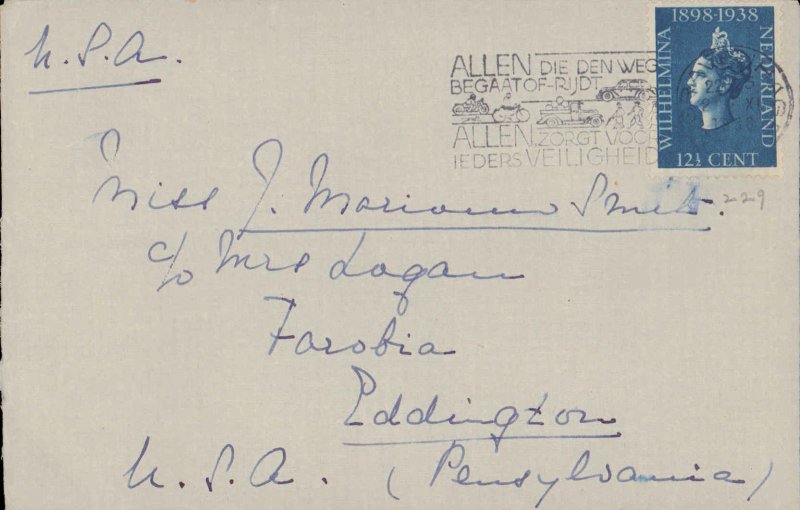 U.S.A.
ALLEN DIE DEN WEG
BEGAAT OF RIJDT
ALLEN ZORGT VOOR
IEDERS VEILIGHEID
1898-1938
WILHELMINA
NEDERLAND
12½ CENT
229
Miss J. Marianne Smit.
c/o Mrs Logan
Farobia
Eddington
U.S.A. (Pensylvania)